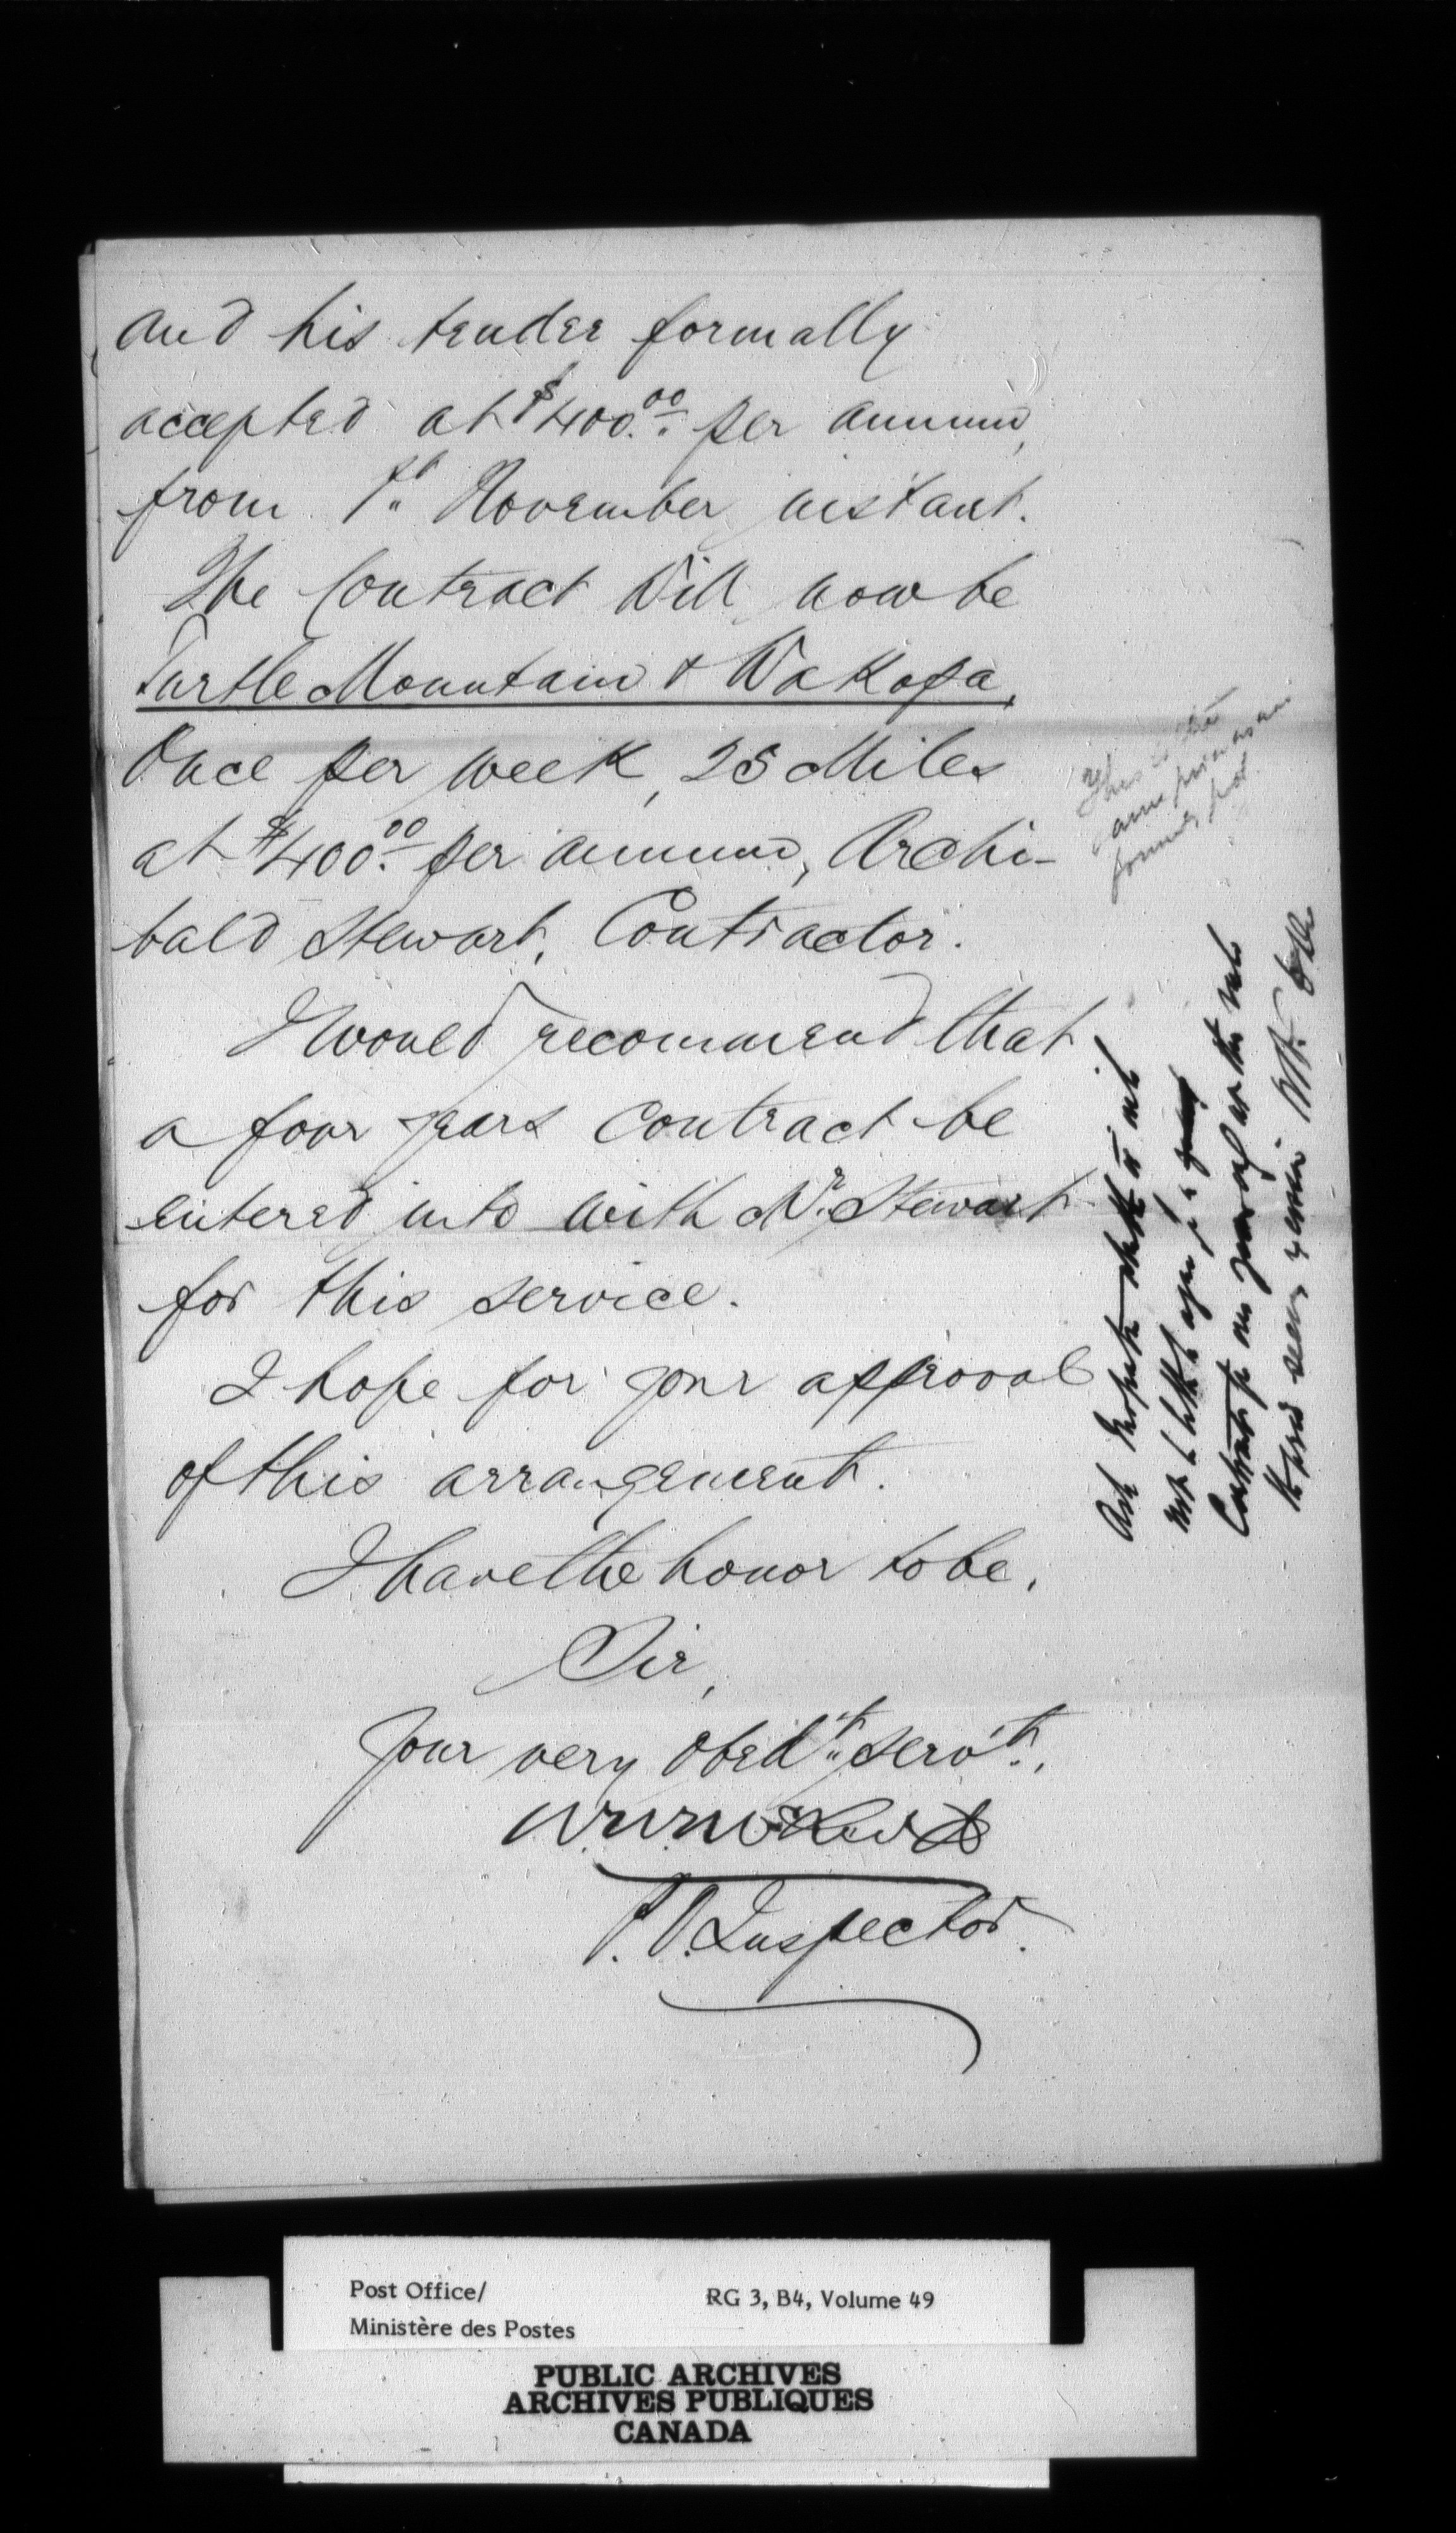 and his tender formally
accepted at $400.00 per annum,
from 1st November instant.
The Contract will now be
Turtle Mountain & Wakopa,
Once per week, 25 Miles
at $400.00 per annum, Archi-
bald Stewart, Contractor.
I would recommend that
a four years contract be
entered into with Mr Stewart
for this service.
I hope for your approval
of this arrangement.
I have the honor to be,
Sir,
Your very Obedt servt.,
P.O. Inspector.
This is the
same price as was
formerly pd
Ask Inspector whether it will
not be better
Contract for one year only as the rate
Post Office/
RG 3, B4, Volume 49
Ministère des Postes
PUBLIC ARCHIVES
ARCHIVES PUBLIQUES
CANADA